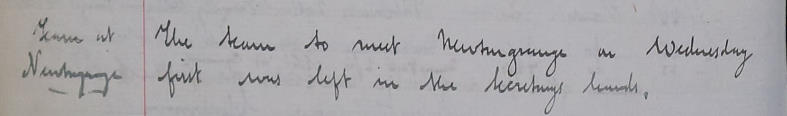 Team at
Newtongrange
The team to meet Newtongrange on Wednesday
first was left in the Secretarys hands.